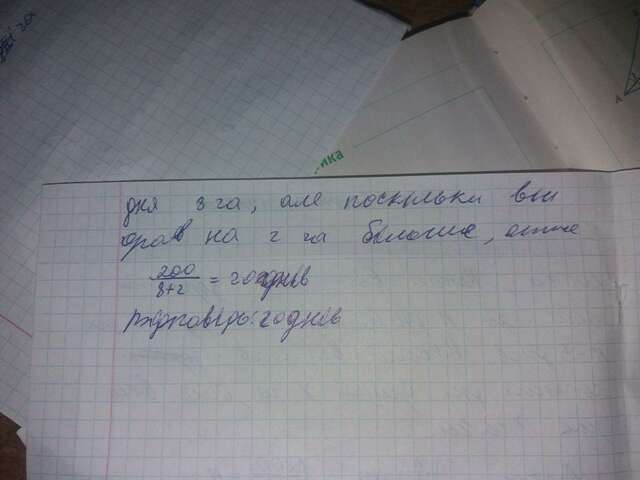 ика
A
дня 8 га, але поскільки він
орав на 2 га більше, отже
200/8+2 = 20 днів
Відповідь: 20 днів